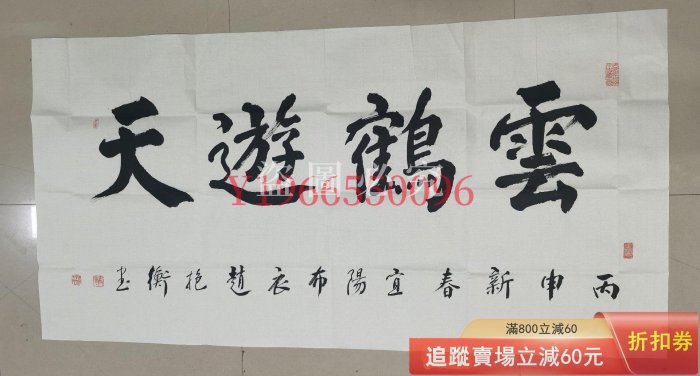 雲鶴遊天
丙申新春宜陽布衣趙抱衡書
滿800立減60
追蹤賣場立減60元
折扣券